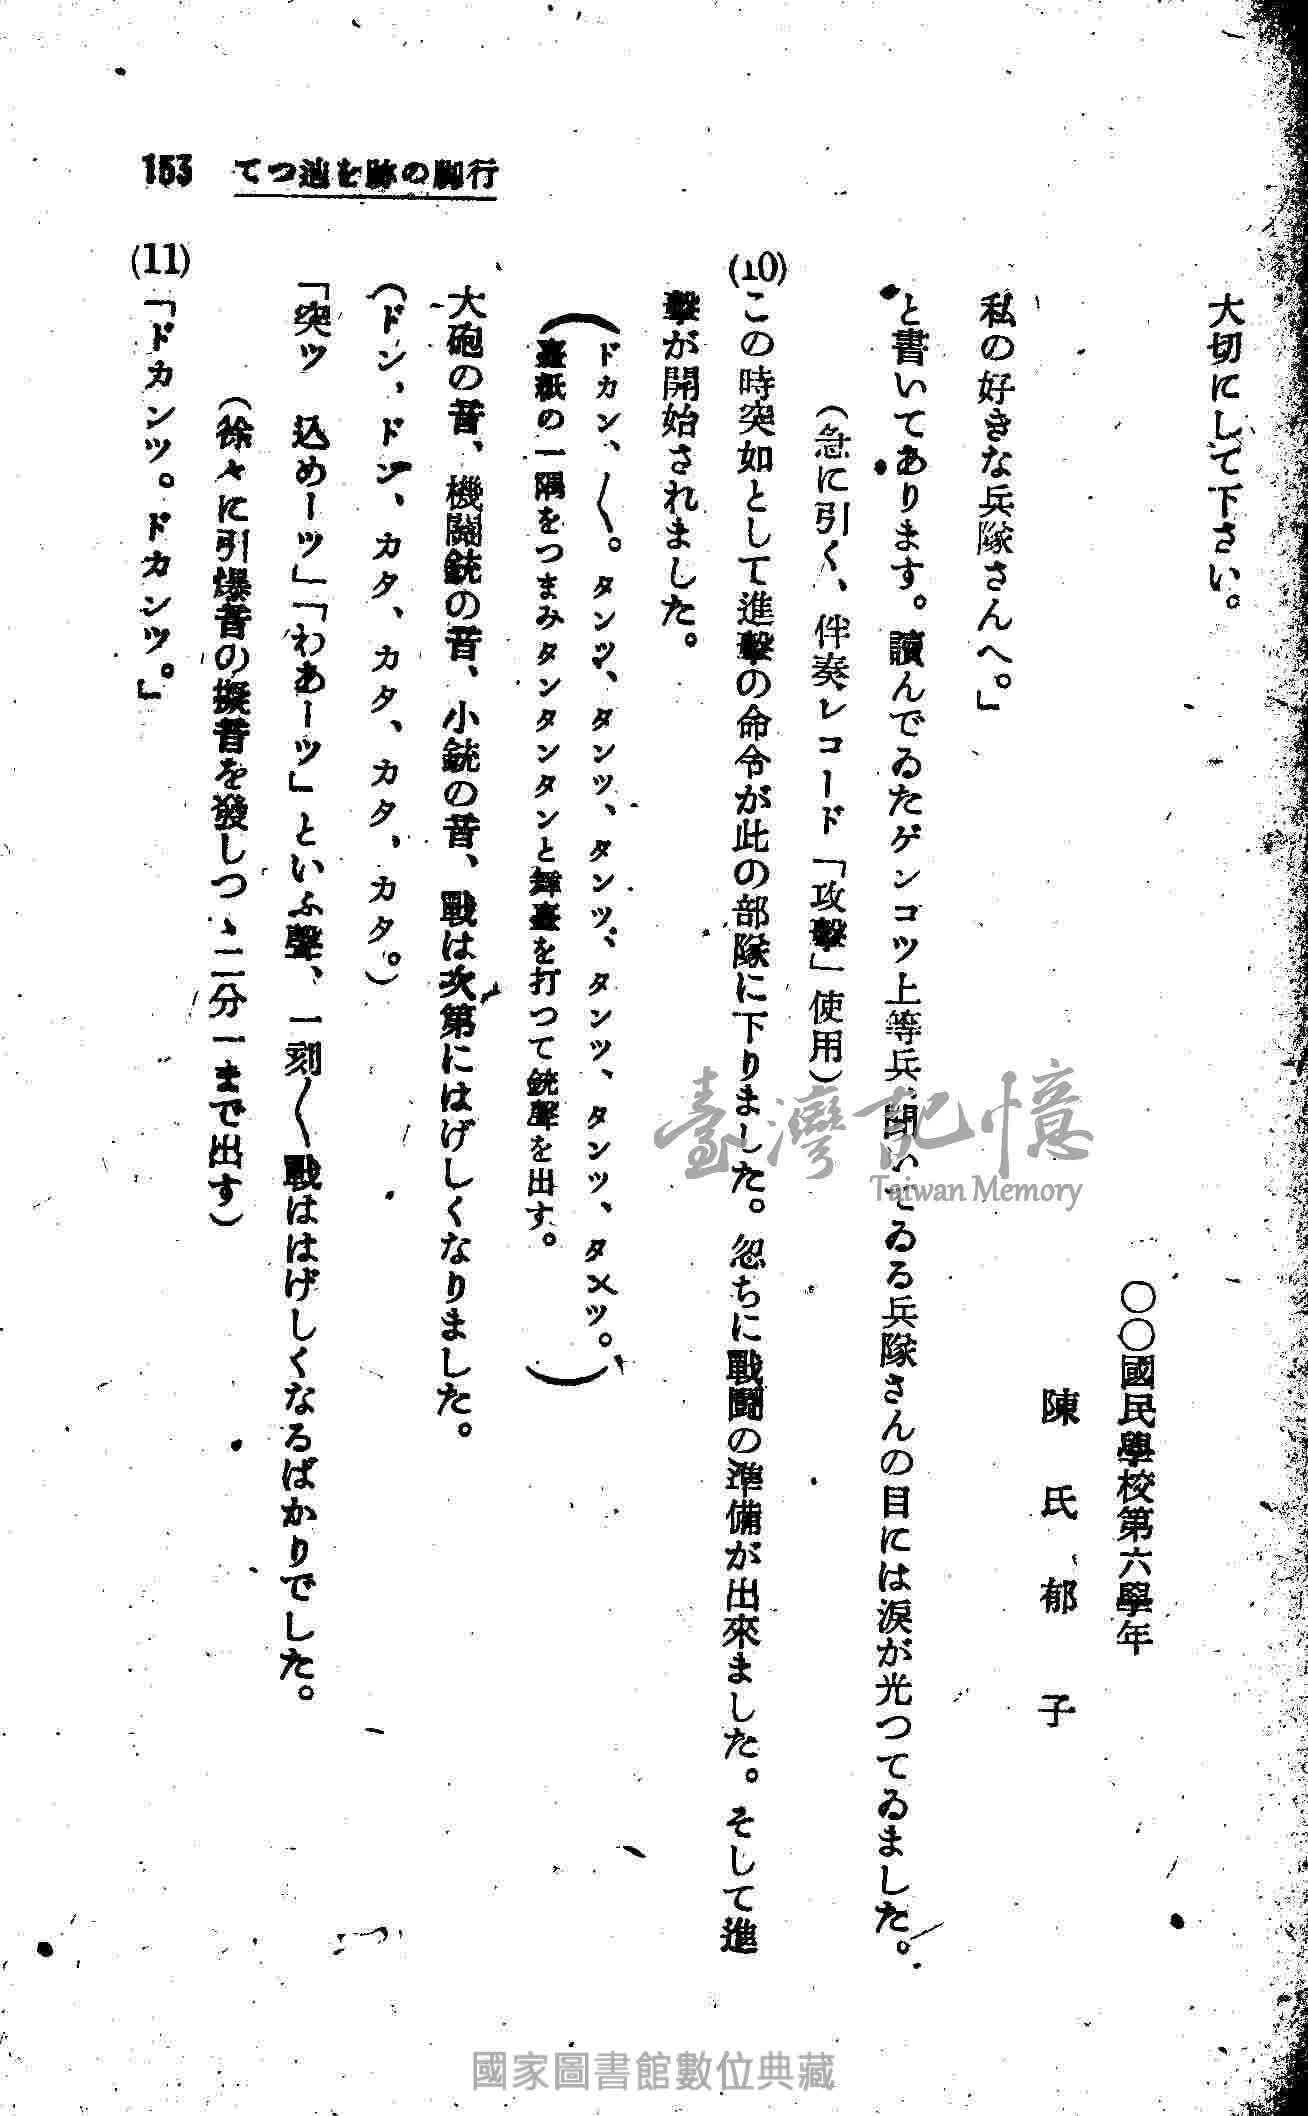 153 てつ辿を跡の脚行
大切にして下さい。
〇〇國民學校第六學年
陳氏郁子
私の好きな兵隊さんへ。」
と書いてあります。讀んでゐたゲンゴツ上等兵、聞いてゐる兵隊さんの目には淚が光つてゐました。
(急に引く、伴奏レコード「攻擊」使用)
(10) この時突如として進擊の命令が此の部隊に下りました。忽ちに戰鬪の準備が出來ました。そして進
擊が開始されました。
(ドカン、〱。タンツ、タンツ、タンツ、タンツ、タンツ、タンツ。
臺紙の一隅をつまみタンタンタンと舞臺を打つて銃聲を出す。)
大砲の音、機關銃の音、小銃の音、戰は次第にはげしくなりました。
(ドン、ドン、カタ、カタ、カタ、カタ。)
「突ツ 込めーツ」「わあーツ」といふ聲、一刻〱戰ははげしくなるばかりでした。
(徐々に引爆音の擬音を發しつゝ二分一まで出す)
(11) 「ドカンツ。ドカンツ。」
臺灣記憶
Taiwan Memory
國家圖書館數位典藏